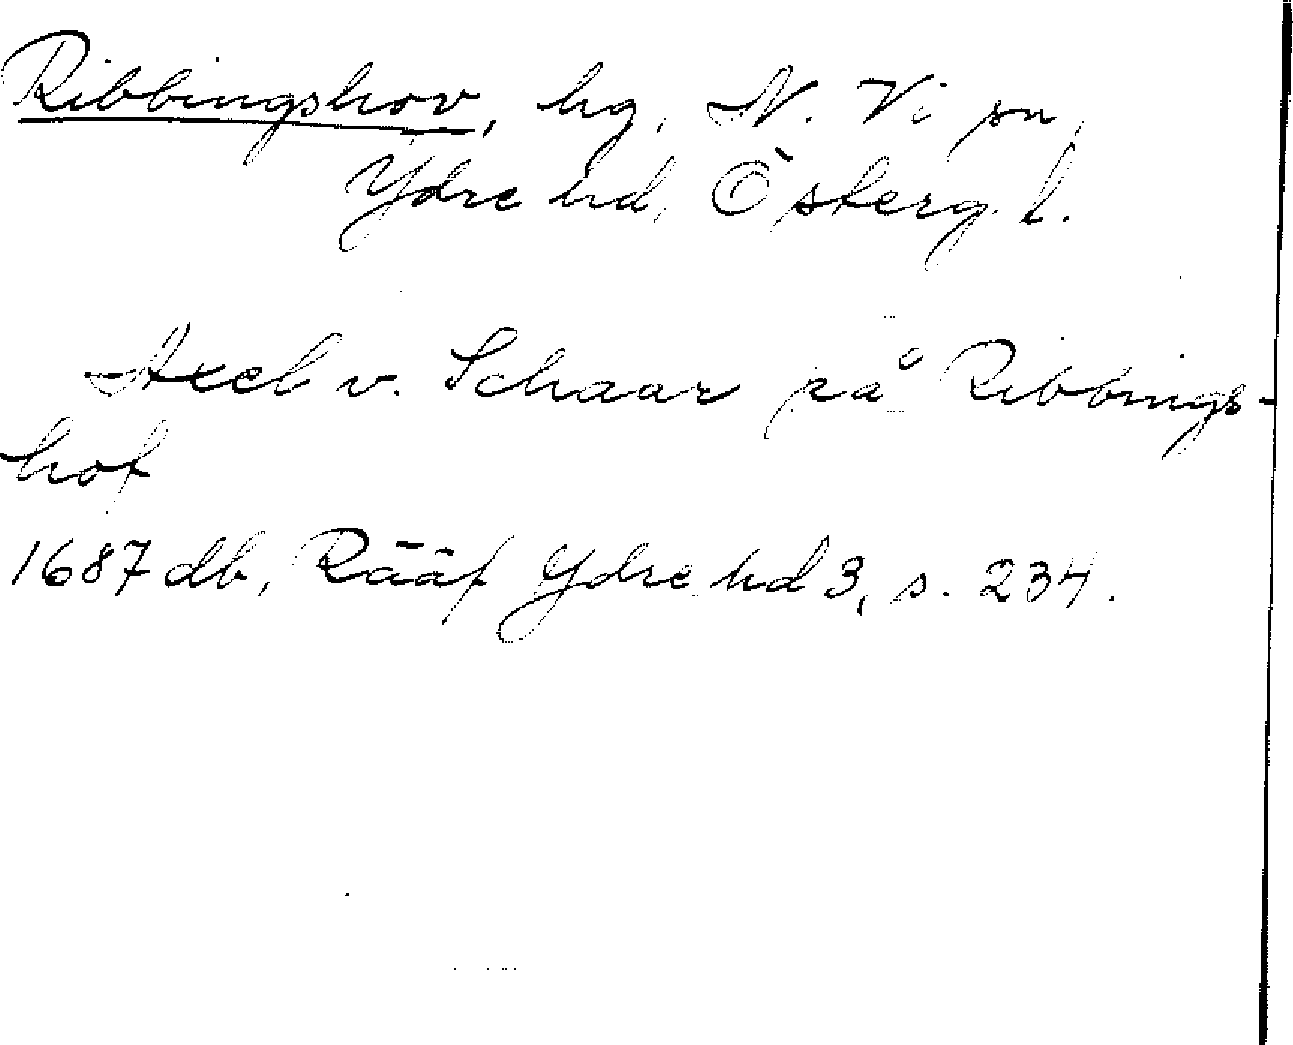 Ribbingshov, hg, N. Vi sn,
Ydre hd, Österg. l.
Axel v. Schaar på Ribbings-
hof
1687 db, Rääf Ydre hd 3, s. 234.